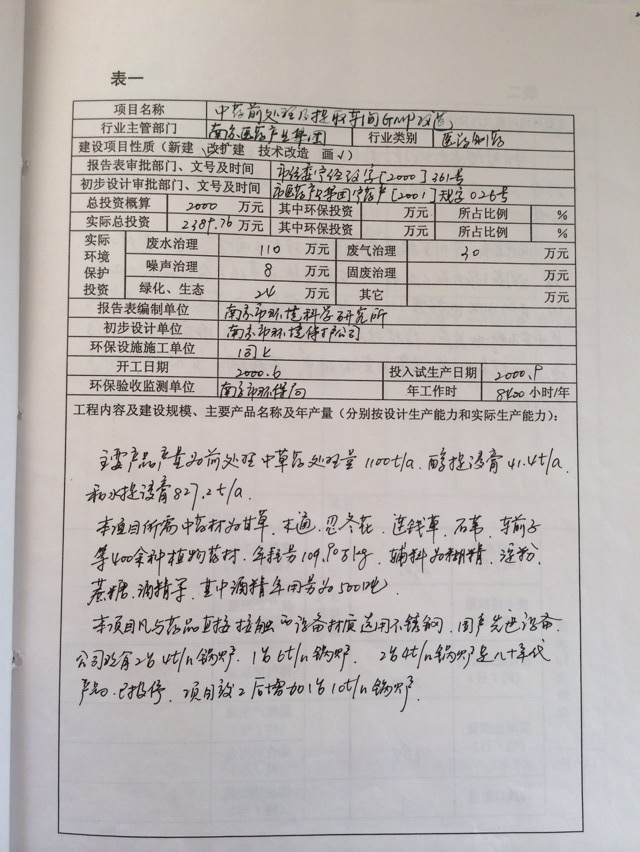 表一
项目名称 中药前处理及提取车间GMP改造
行业主管部门 南京医药产业集团 行业类别 医药制药
建设项目性质（新建 改扩建 技术改造 画√）
报告表审批部门、文号及时间 [2000]361号
初步设计审批部门、文号及时间 [2001] 026号
总投资概算 2000 万元 其中环保投资 万元 所占比例 %
实际总投资 2389.76 万元 其中环保投资 万元 所占比例 %
实际环境保护投资 废水治理 110 万元 废气治理 30 万元
噪声治理 8 万元 固废治理 万元
绿化、生态 24 万元 其它 万元
报告表编制单位 南京市环境科学研究所
初步设计单位 南京市环境保护公司
环保设施施工单位 同上
开工日期 2000.6 投入试生产日期 2000.9
环保验收监测单位 南京市环保局 年工作时 8400 小时/年
工程内容及建设规模、主要产品名称及年产量（分别按设计生产能力和实际生产能力）：
主要产品产量为前处理中草药处理量1100t/a、醇提浸膏41.4t/a
和水提浸膏827.2t/a.
本项目所需中药材为甘草、木通、忍冬花、连钱草、石苇、车前子
等400余种植物药材，年耗量109.90万kg，辅料为糊精、淀粉、
蔗糖、酒精等，其中酒精年用量为500吨.
本项目凡与药品直接接触的设备材质选用不锈钢，国产先进设备.
公司现有2台4t/n锅炉、1台6t/n锅炉、2台4t/n锅炉是八十年代
产的、已报停、项目竣工后增加1台10t/n锅炉.